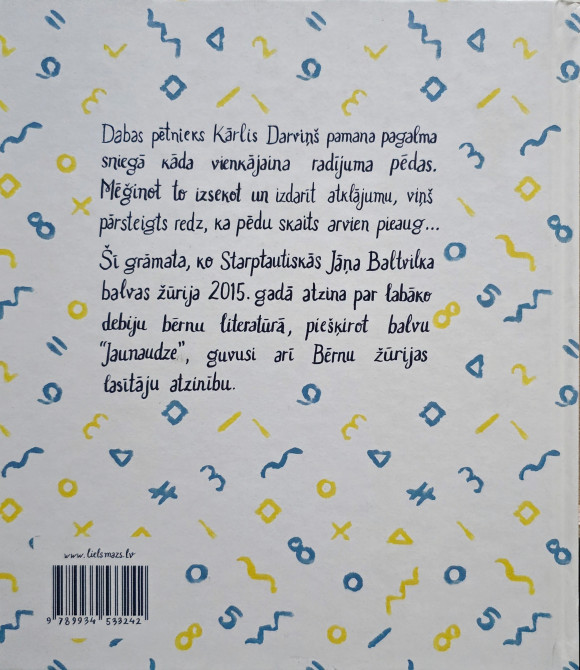 Dabas pētnieks Kārlis Darviņš pamana pagalma
sniegā kāda vienkājaina radījuma pēdas.
Mēģinot to izsekot un izdarīt atklājumu, viņš
pārsteigts redz, ka pēdu skaits arvien pieaug...
Šī grāmata, ko Starptautiskās Jāņa Baltvilka
balvas žūrija 2015. gadā atzina par labāko
debiju bērnu literatūrā, piešķirot balvu
"Jaunaudze", guvusi arī Bērnu žūrijas
lasītāju atzinību.
www.lielsmazs.lv
9 789934 533242